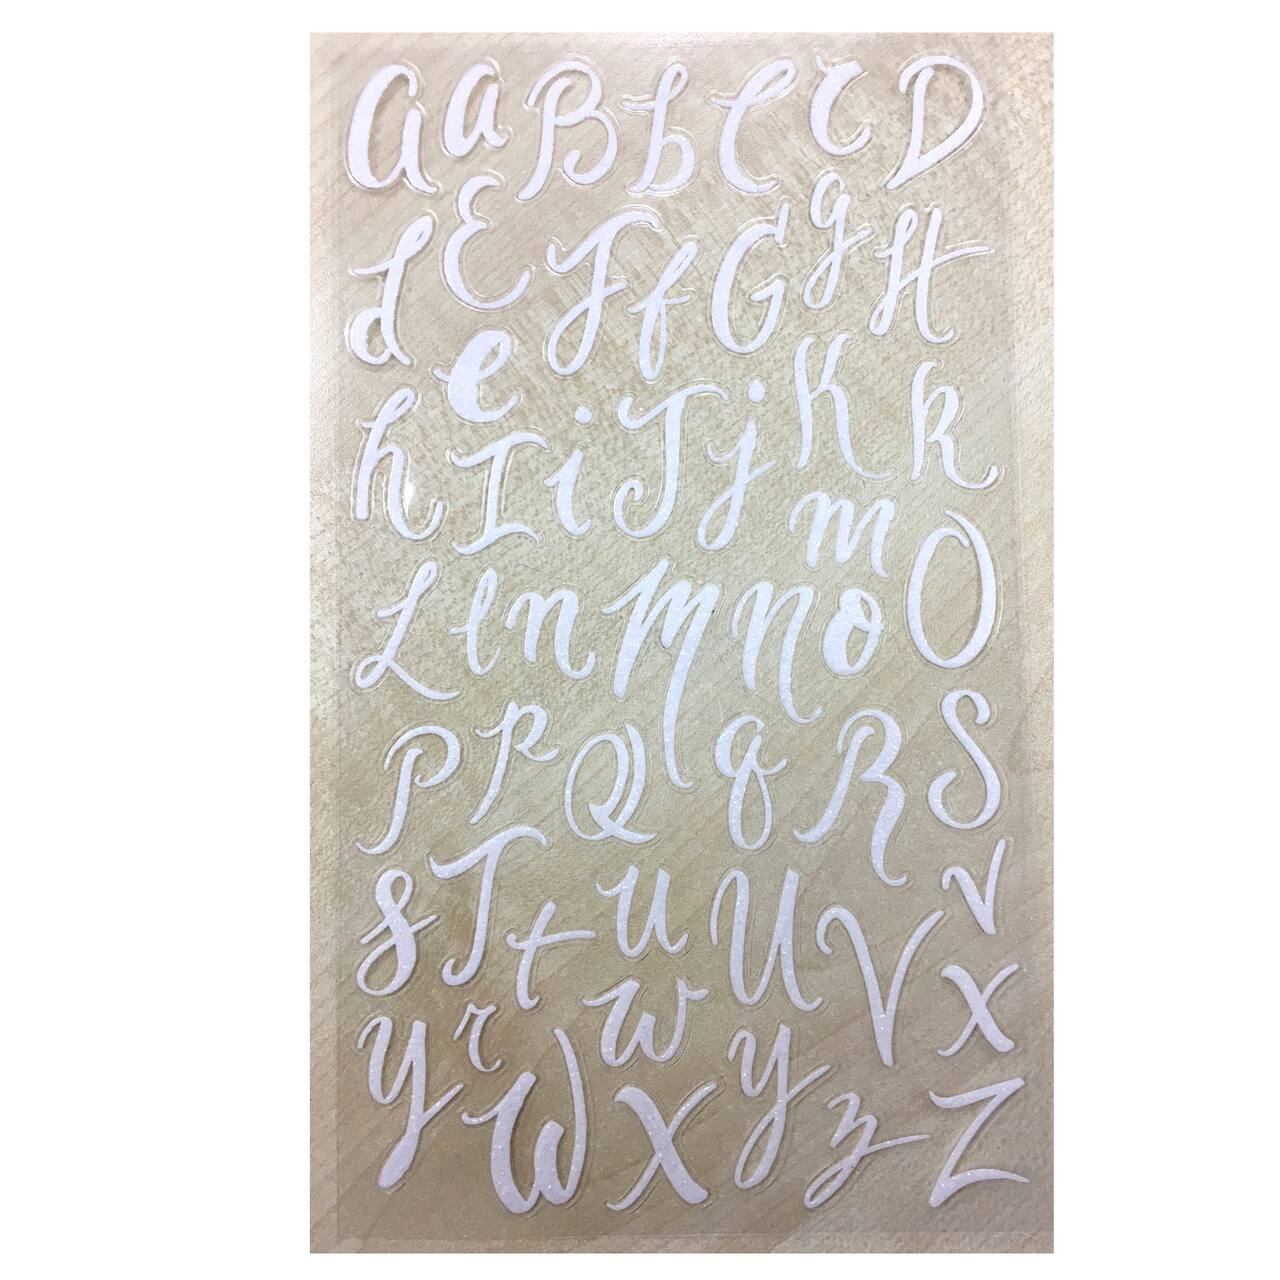 a a B b C c D
d E F f G g H
h e I i J j K k
L l n M n m o O
P p Q q R S
s T t u U V v
y r W w X y z Z x